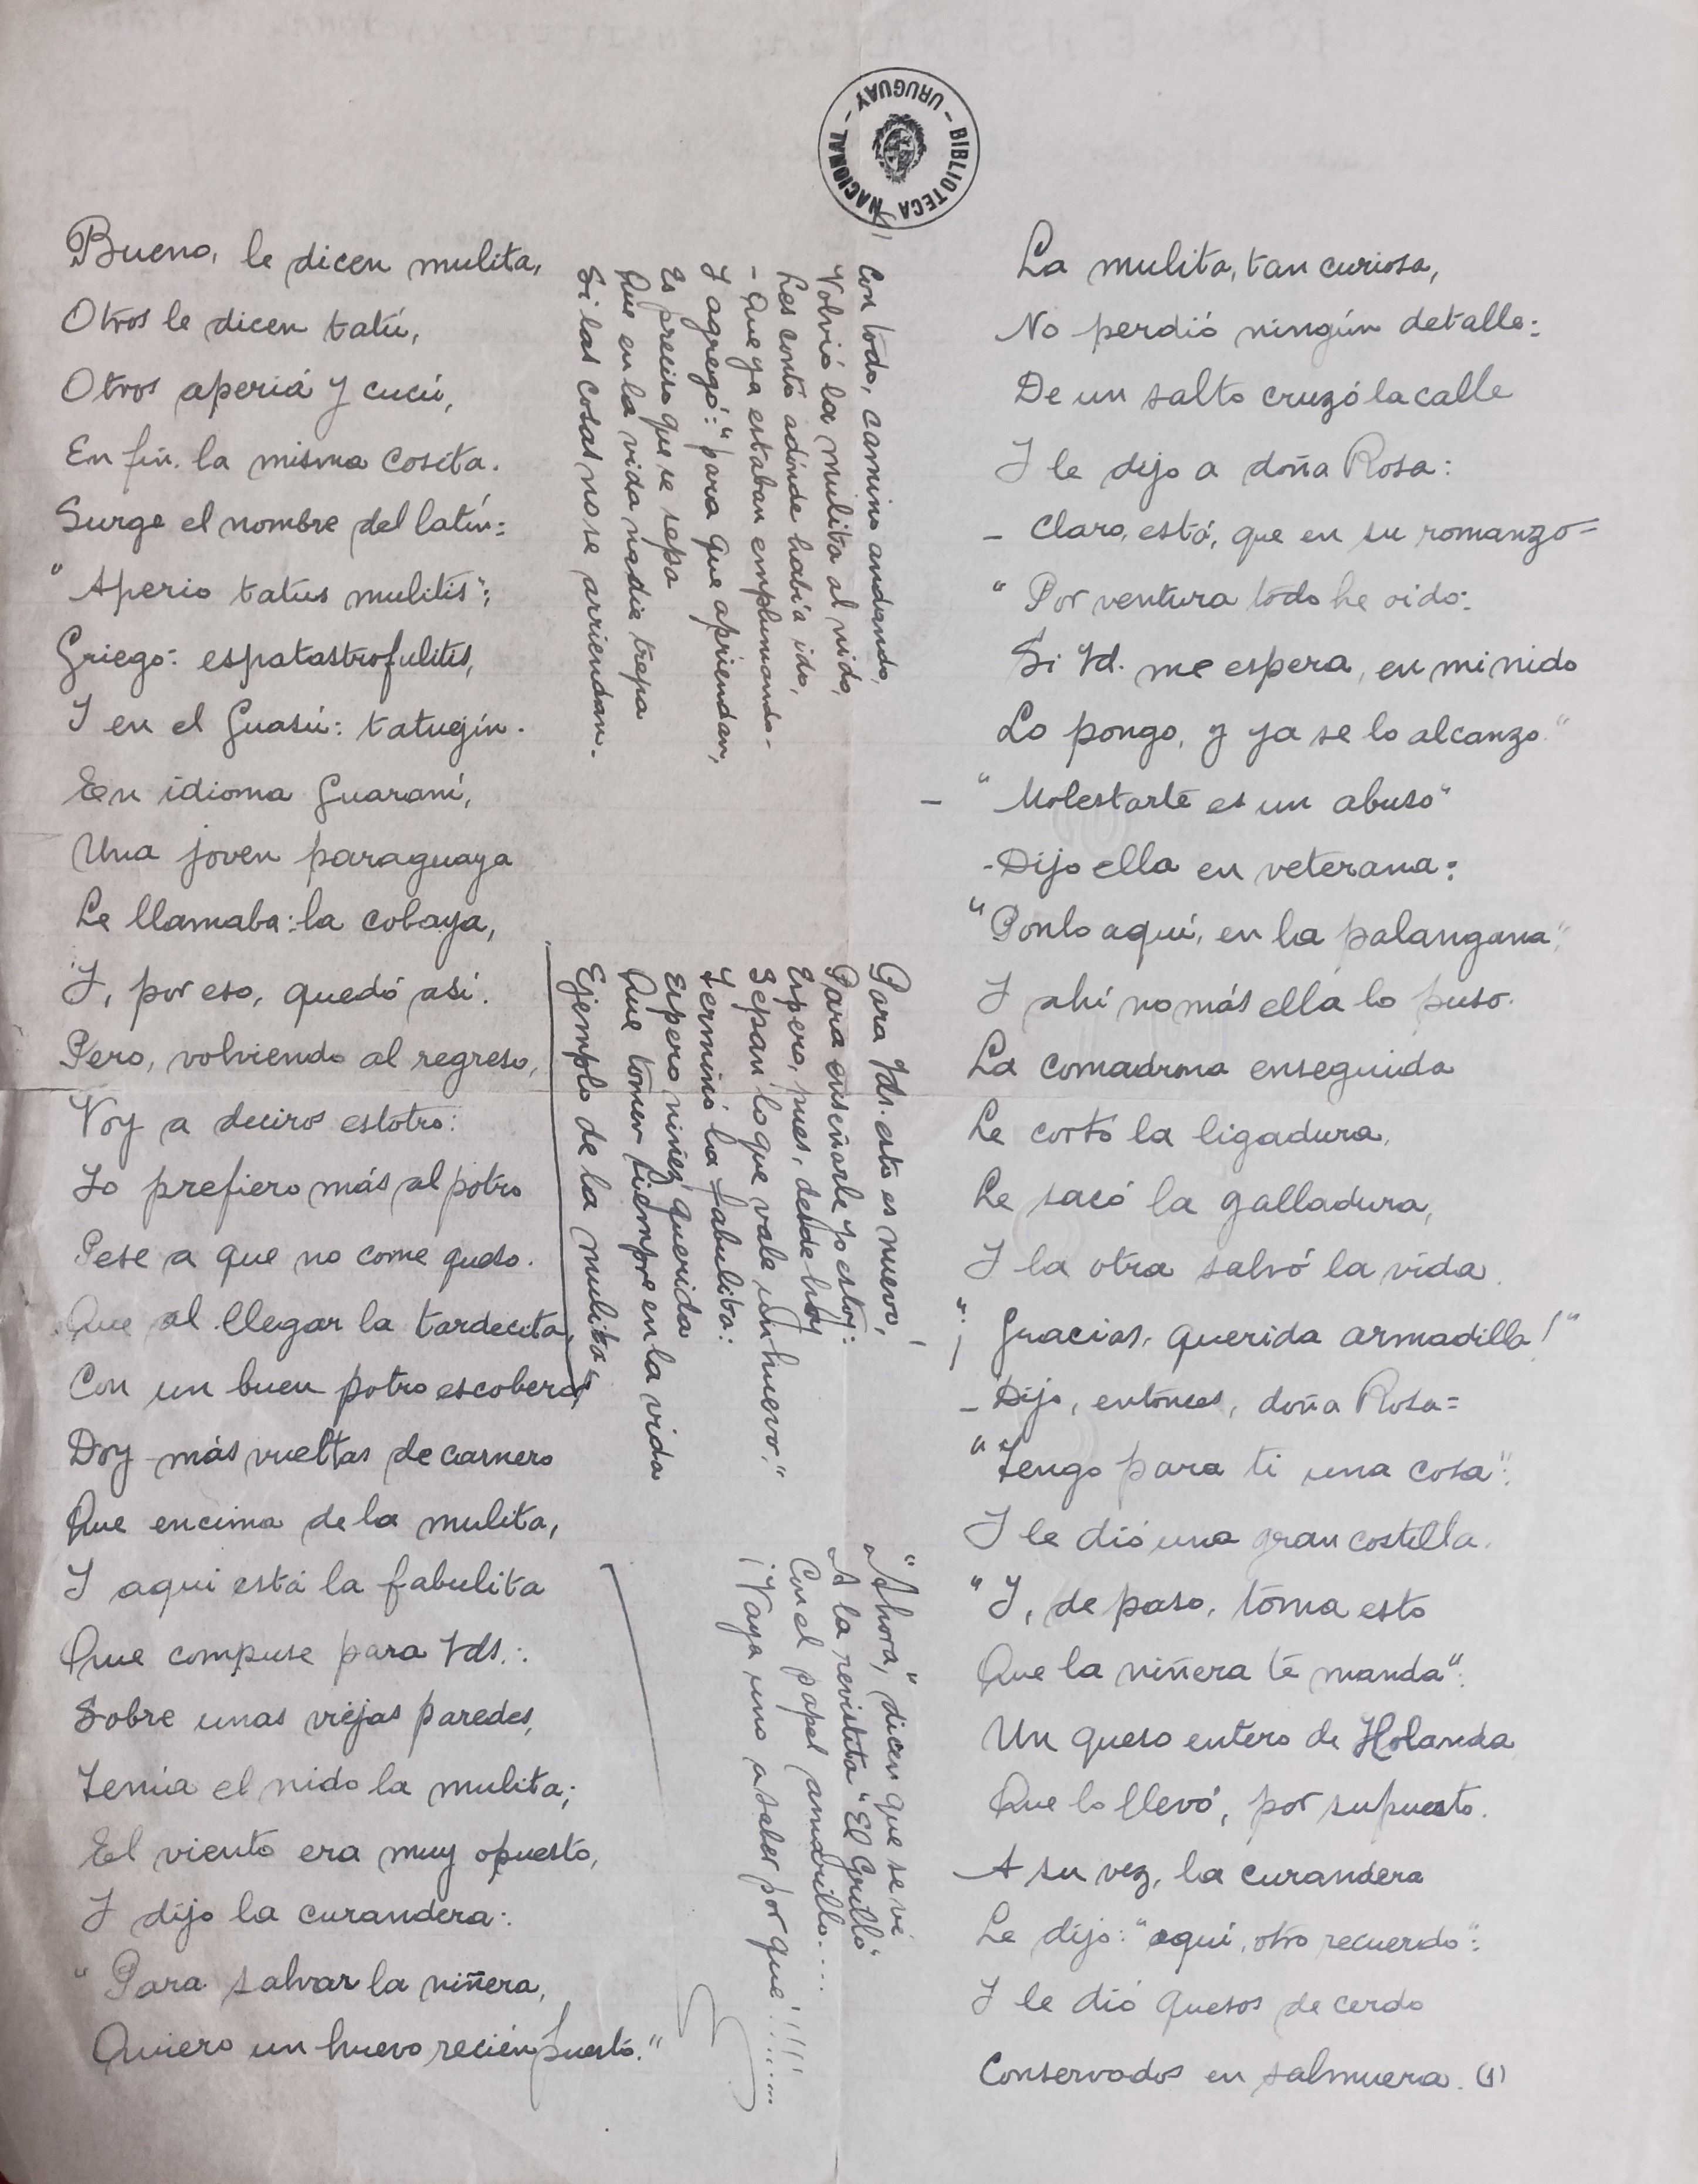 BIBLIOTECA NACIONAL - URUGUAY -
Bueno, le dicen mulita,
Otros le dicen tatú,
Otros aperiá y cucú,
En fin. la misma cosita.
Surge el nombre del latín:
"Aperio tatus mulitis";
Griego: espatastrofulitis,
Y en el Guasú: tatugín.
En idioma Guaraní,
Una joven paraguaya
Le llamaba: la cobaya,
Y, por eso, quedó así.
Pero, volviendo al regreso,
Voy a deciros estotro:
Yo prefiero más al potro
Pese a que no come queso.
Que al llegar la tardecita,
Con un buen potro escobero
Doy más vueltas de carnero
Que encima de la mulita,
Y aquí está la fabulita
Que compuse para Vds.:
Sobre unas viejas paredes,
Tenía el nido la mulita;
El viento era muy opuesto,
Y dijo la curandera:
"Para salvar la niñera,
Quiero un huevo recién puesto."
La mulita, tan curiosa,
No perdió ningún detalle:
De un salto cruzó la calle
Y le dijo a doña Rosa:
- Claro, está, que en su romanzo=
"Por ventura todo he oido:
Si Vd. me espera, en mi nido
Lo pongo, y ya se lo alcanzo."
- "Molestarte es un abuso"
-Dijo ella en veterana:
"Ponlo aquí, en la palangana"
Y ahí no más ella lo puso.
La comadrona enseguida
Le cortó la ligadura,
Le sacó la galladura,
Y la otra salvó la vida.
"¡Gracias, querida armadilla!"
- Dijo, entonces, doña Rosa=
"Tengo para ti una cosa":
Y le dió una gran costilla.
"Y, de paso, toma esto
Que la niñera te manda":
Un queso entero de Holanda
Que lo llevó, por supuesto.
A su vez, la curandera
Le dijo: "aquí, otro recuerdo":
Y le dió quesos de cerdo
Conservados en salmuera. (1)
Con todo, camino andando,
Volvió la mulita al nido,
Les contó adónde había ido,
- Que ya estaban emplumando -
Y agregó: "para que apriendan,
Es preciso que se sepa
Que en la vida nadie trepa
Si las cosas no se arriendan.
Para Vds. esto es nuevo,
Para enseñarle yo estoy:
Espero, pues, desde hoy
Sepan lo que vale un huevo."
Terminó la fabulita:
Espero niñez querida
Que tomen siempre en la vida
Ejemplo de la mulita"
"Ahora," dicen que se vé
A la revistita "El Grillo"
Con el papel amarillo....
¡Vaya uno a saber por qué!!!!......